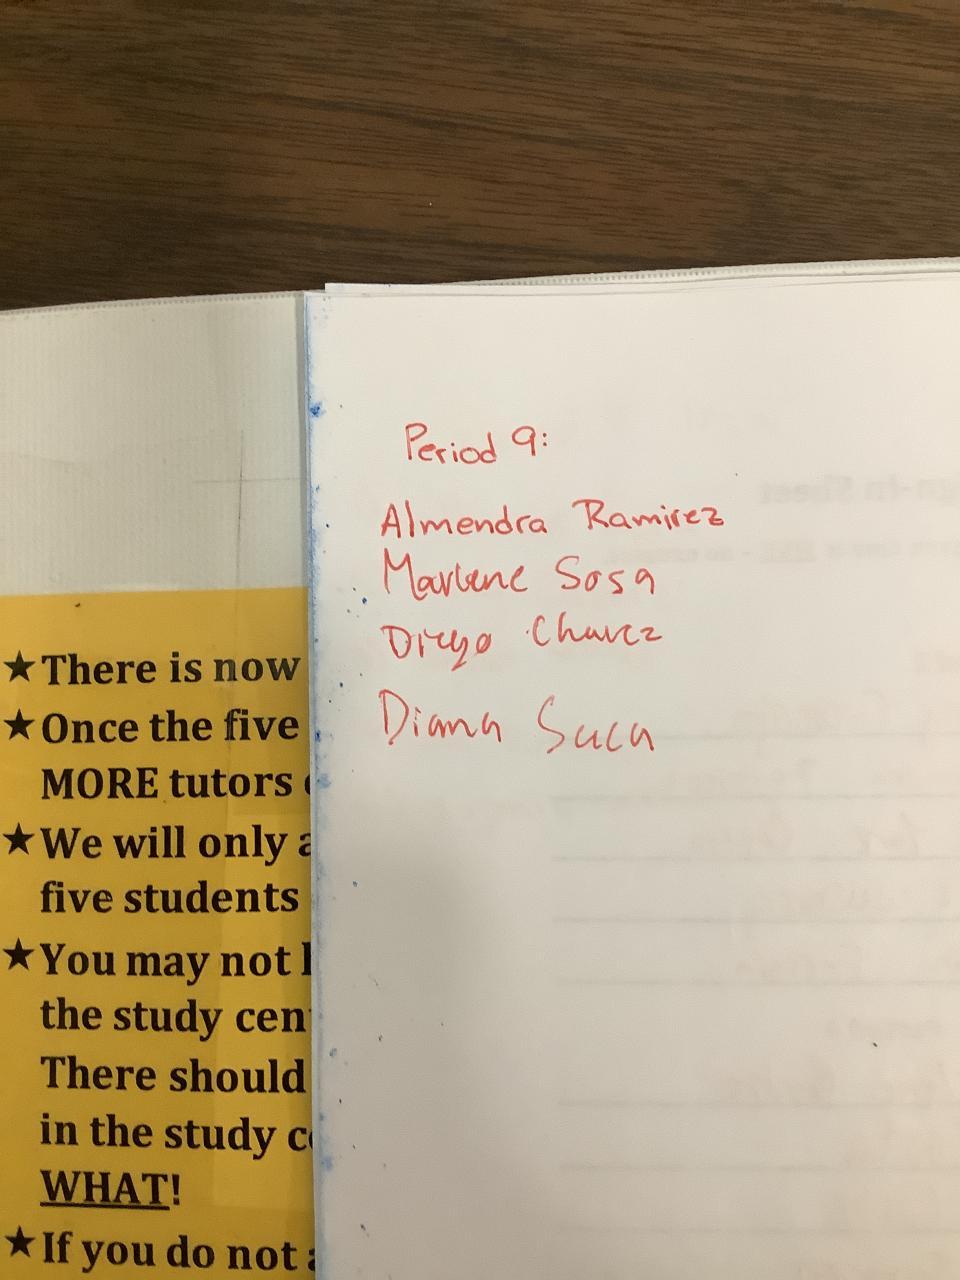 Period 9:
Almendra Ramirez
Marlene Sosa
Diego Chavez
Diana Suca
★There is now
★Once the five
MORE tutors
★We will only
five students
★You may not
the study
There should
in the study
WHAT!
★If you do not